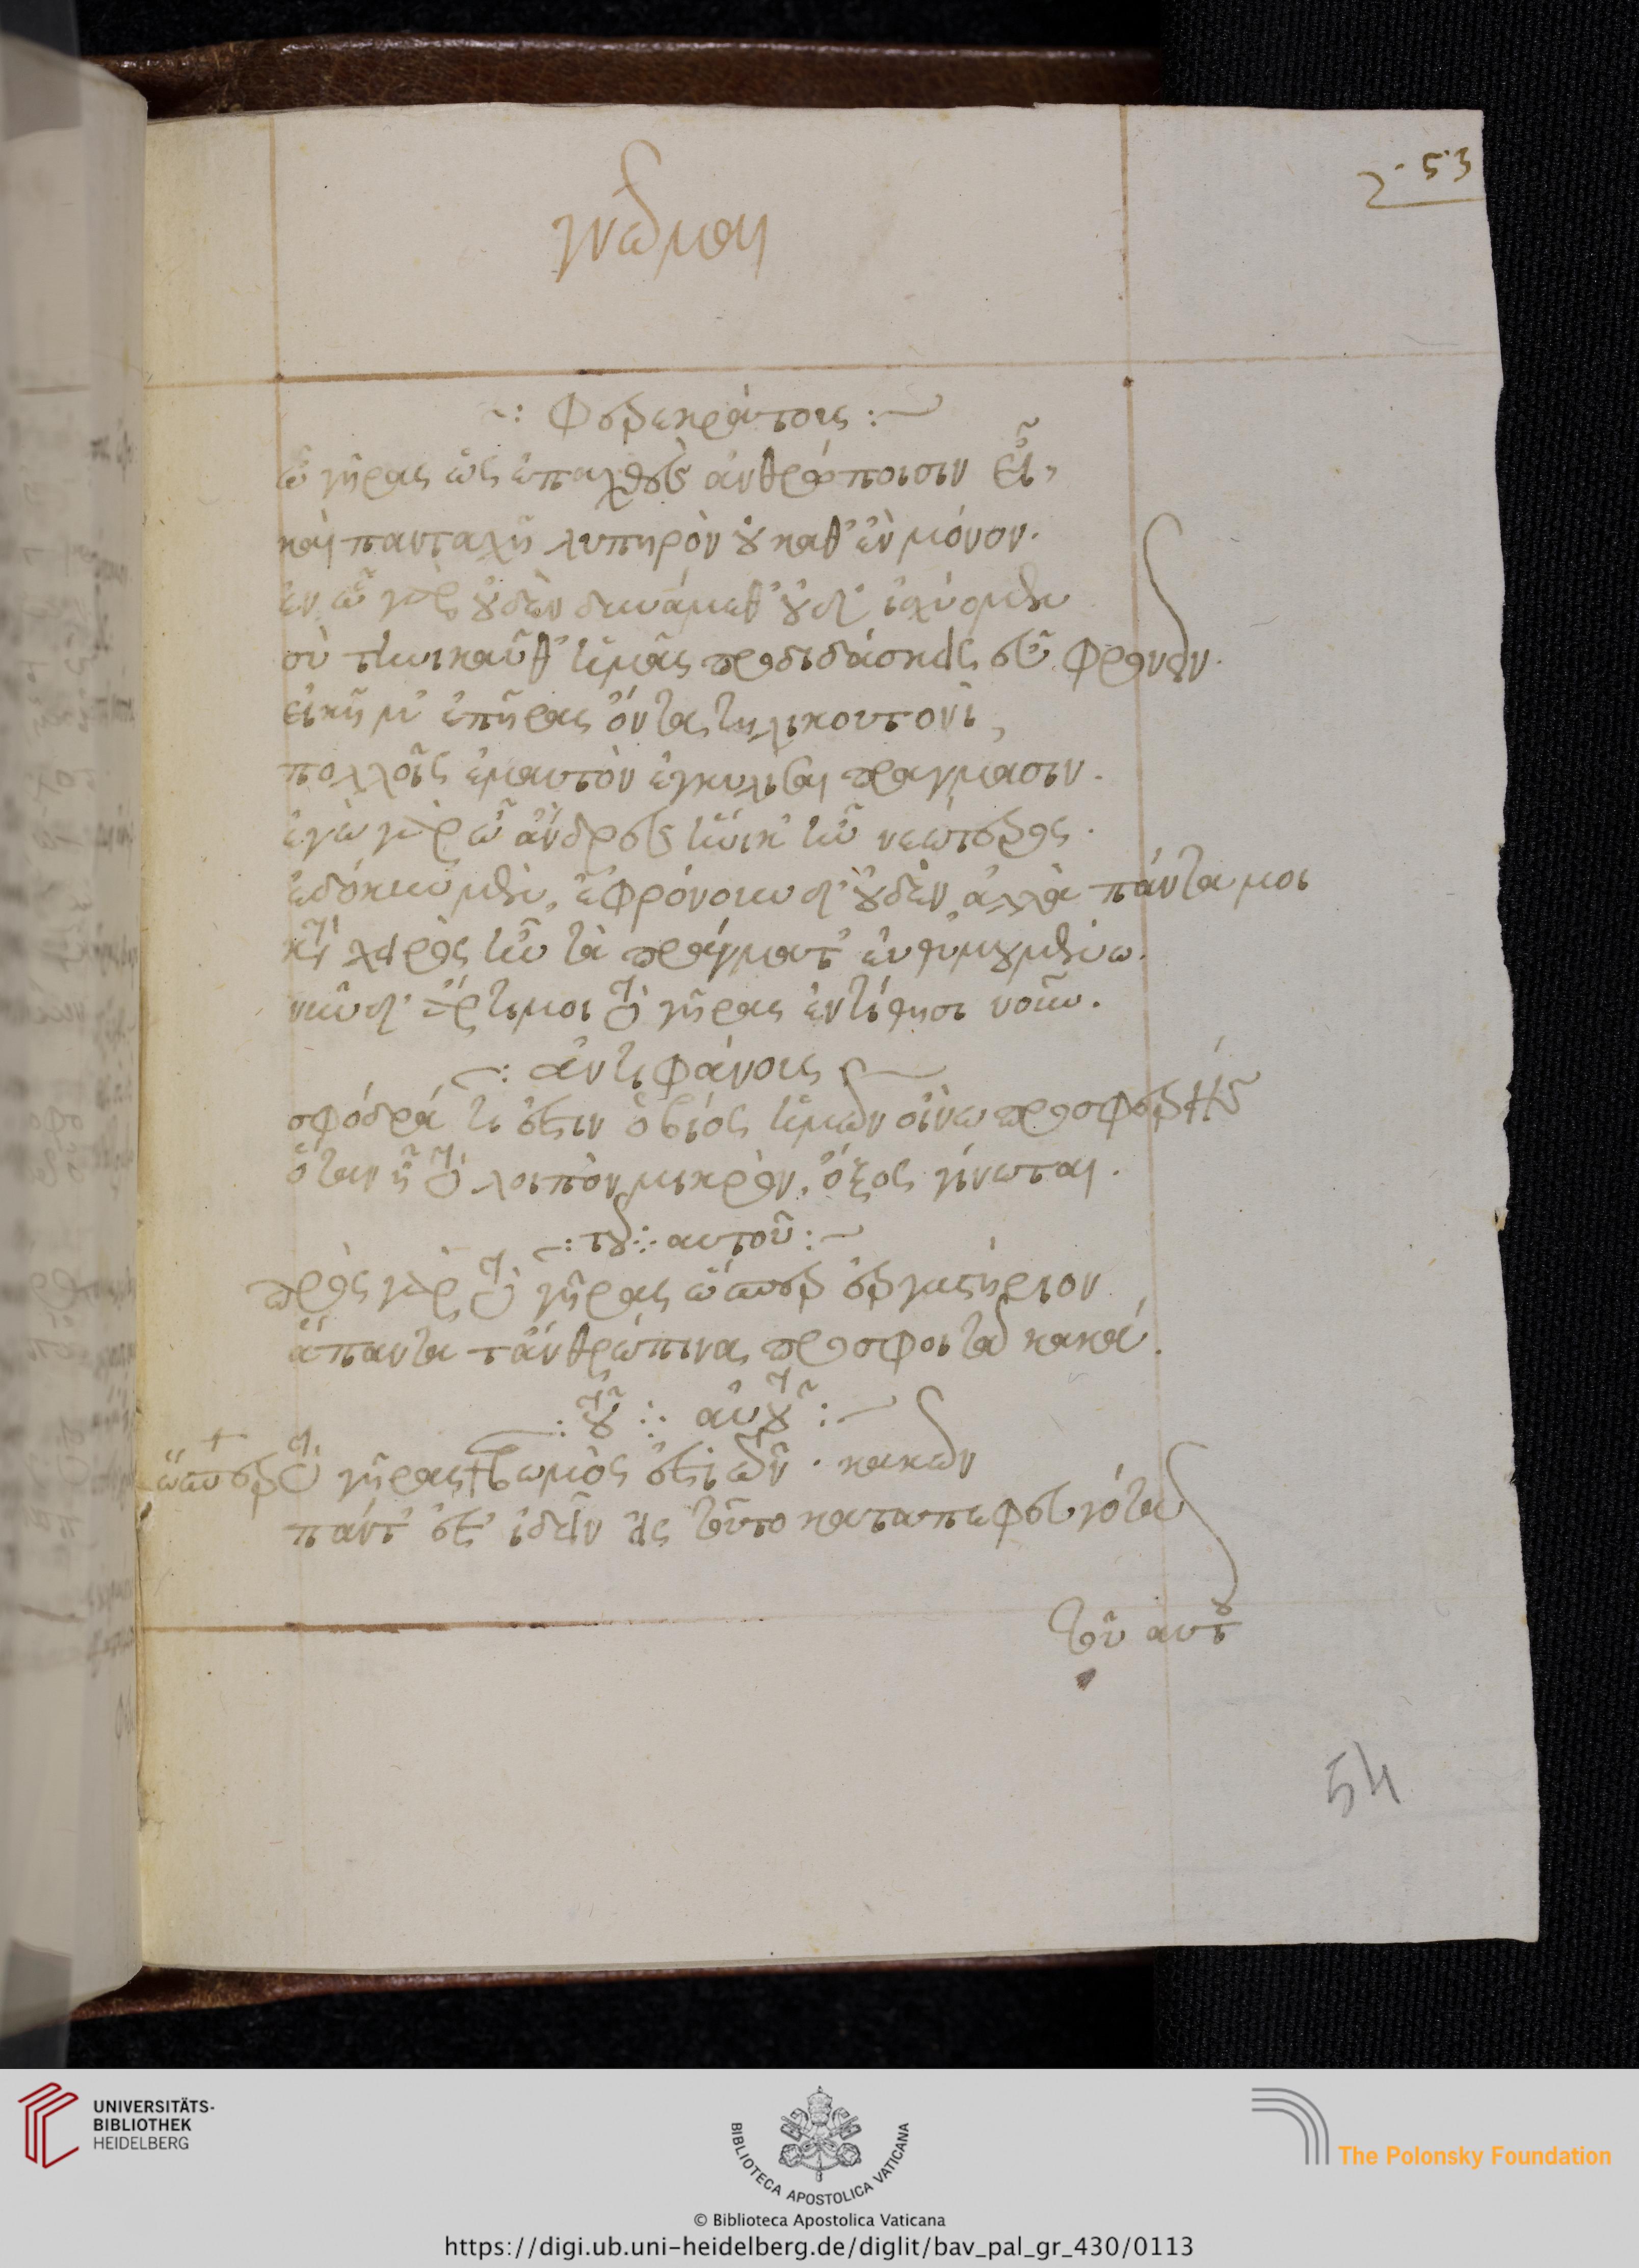 γνῶμαι
2·53
Φερεκράτους
ὦ γῆρας ὡς ἐπαχθὲς ἀνθρώποισιν εἶ,
καὶ πανταχῆ λυπηρὸν οὐ καθ' ἓν μόνον.
ἐν ὧ γὰρ οὐδὲν δυνάμεθ' οὐδ' ἰσχύομεν
σὺ τηνικαῦθ' ἡμᾶς προδιδάσκεις εὖ φρονεῖν.
εἰκῆ μ' ἐπῆρας ὄντα τηλικουτονὶ,
πολλοῖς ἐμαυτὸν ἐγκυλίσαι πράγμασιν.
ἐγὼ γὰρ ὦ ἄνδρες ἡνίκ' ἦν νεώτερος.
ἐδόκουν μὲν, ἐφρόνουν δ' οὐδὲν, ἀλλὰ πάντα μοι
κατὰ χεῖρας ἦν τὰ πράγματ' ἐνθυμουμένω.
νῦν δ' ἄρτι μοι τὸ γῆρας ἐντίθησι νοῦν.
ἀντιφάνους
σφόδρά τι ἐστιν ὁ βίος ἡμῶν οἴνω προσφερὴς
ὅταν ῆ τὸ λοιπὸν μικρὸν, ὄξος γίνεται.
τοῦ αυτοῦ
πρὸς γὰρ τὸ γῆρας ὥσπερ ἐργαστήριον
ἅπαντα τἀνθρώπινα προσφοιτᾶ κακά.
τοῦ αὐτοῦ
ὥσπερ τὸ γῆρας βωμὸς ἐστὶ τῶν κακῶν
πάντ' ἐστ' ἰδεῖν εἰς τοῦτο καταπεφευγότα
τοῦ αυτοῦ
54
UNIVERSITÄTS-
BIBLIOTHEK
HEIDELBERG
BIBLIOTECA APOSTOLICA VATICANA
The Polonsky Foundation
© Biblioteca Apostolica Vaticana
https://digi.ub.uni-heidelberg.de/diglit/bav_pal_gr_430/0113